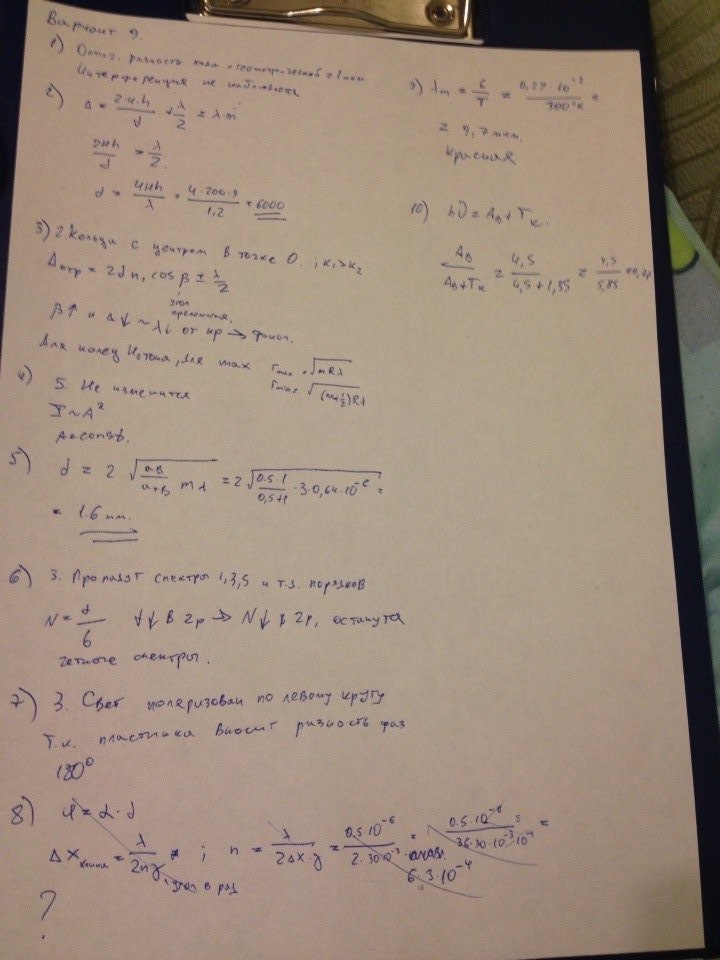 Вариант 9
1) Оптич. разность хода = геометрической = 1 мкм
Интерференция не наблюдается
2) Δ = 2·H·h/d + λ/2 = λm
2Hh/d = λ/2.
d = 4Hh/λ = 4·200·9/1,2 = 6000
3) 2 Кольца с центром в точке О. ; k₁>k₂
Δотр = 2dn₁ cosβ ± λ/2
угол преломления.
β↑ и Δ↓ ~ λ↓ от кр → фиол.
Для колец Ньютона, для max rmax = √mRλ
rmin = √(m+1/2)Rλ
4) 5. Не изменится
I~A²
A=const.
5) d = 2 √(aв/(a+в) mλ) = 2√(0.5·1/(0,5+1) ·3·0,64·10⁻⁶ =
= 1.6 мм.
6) 3. Пропадут спектры 1,3,5 и т.д. порядков
N = d/б d↓ в 2р → N↓ в 2р, останутся
четные спектры.
7) 3. Свет поляризован по левому кругу
Т.к. пластинка вносит разность фаз
180°
8) φ = α·d
Δxклина = λ/2nγ ; n = λ/2Δx·γ = 0.5·10⁻⁶/2·30·10⁻³ =
6.3·10⁻⁴
?
9) λm = б/T = 0,29·10⁻²/300°К =
= 9,7 мкм.
Красная
10) hν = Aв + Tк.
Aв/Aв+Tк = 4,5/4,5+1,35 = 4,5/5,85